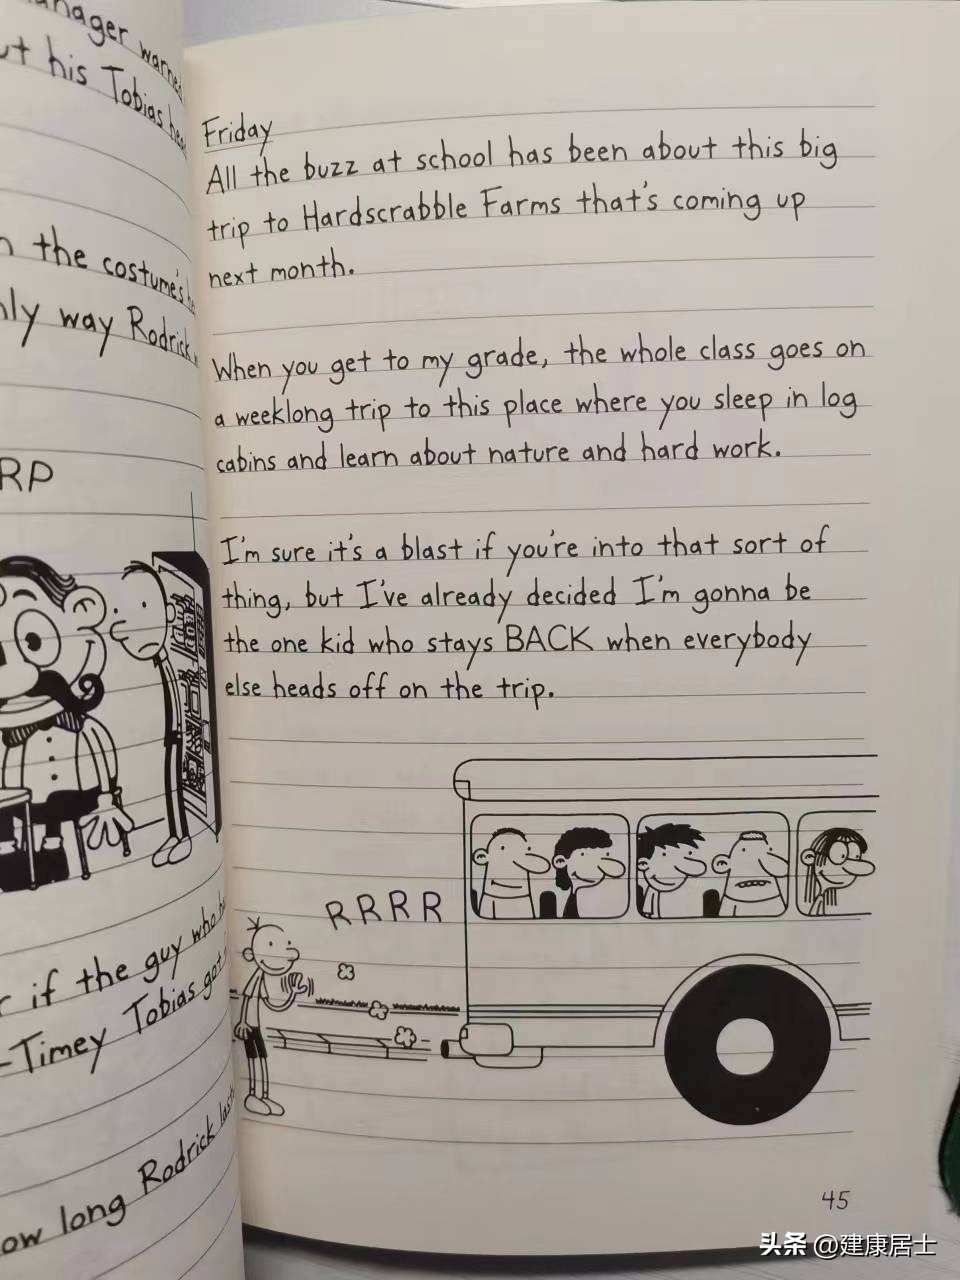 anager warned
ut his Tobias
n the costume's
nly way Rodrick
RP
r if the guy who
-Timey Tobias got
ow long Rodrick
Friday
All the buzz at school has been about this big
trip to Hardscrabble Farms that's coming up
next month.
When you get to my grade, the whole class goes on
a weeklong trip to this place where you sleep in log
cabins and learn about nature and hard work.
I'm sure it's a blast if you're into that sort of
thing, but I've already decided I'm gonna be
the one kid who stays BACK when everybody
else heads off on the trip.
RRRR
45
头条 @建康居士